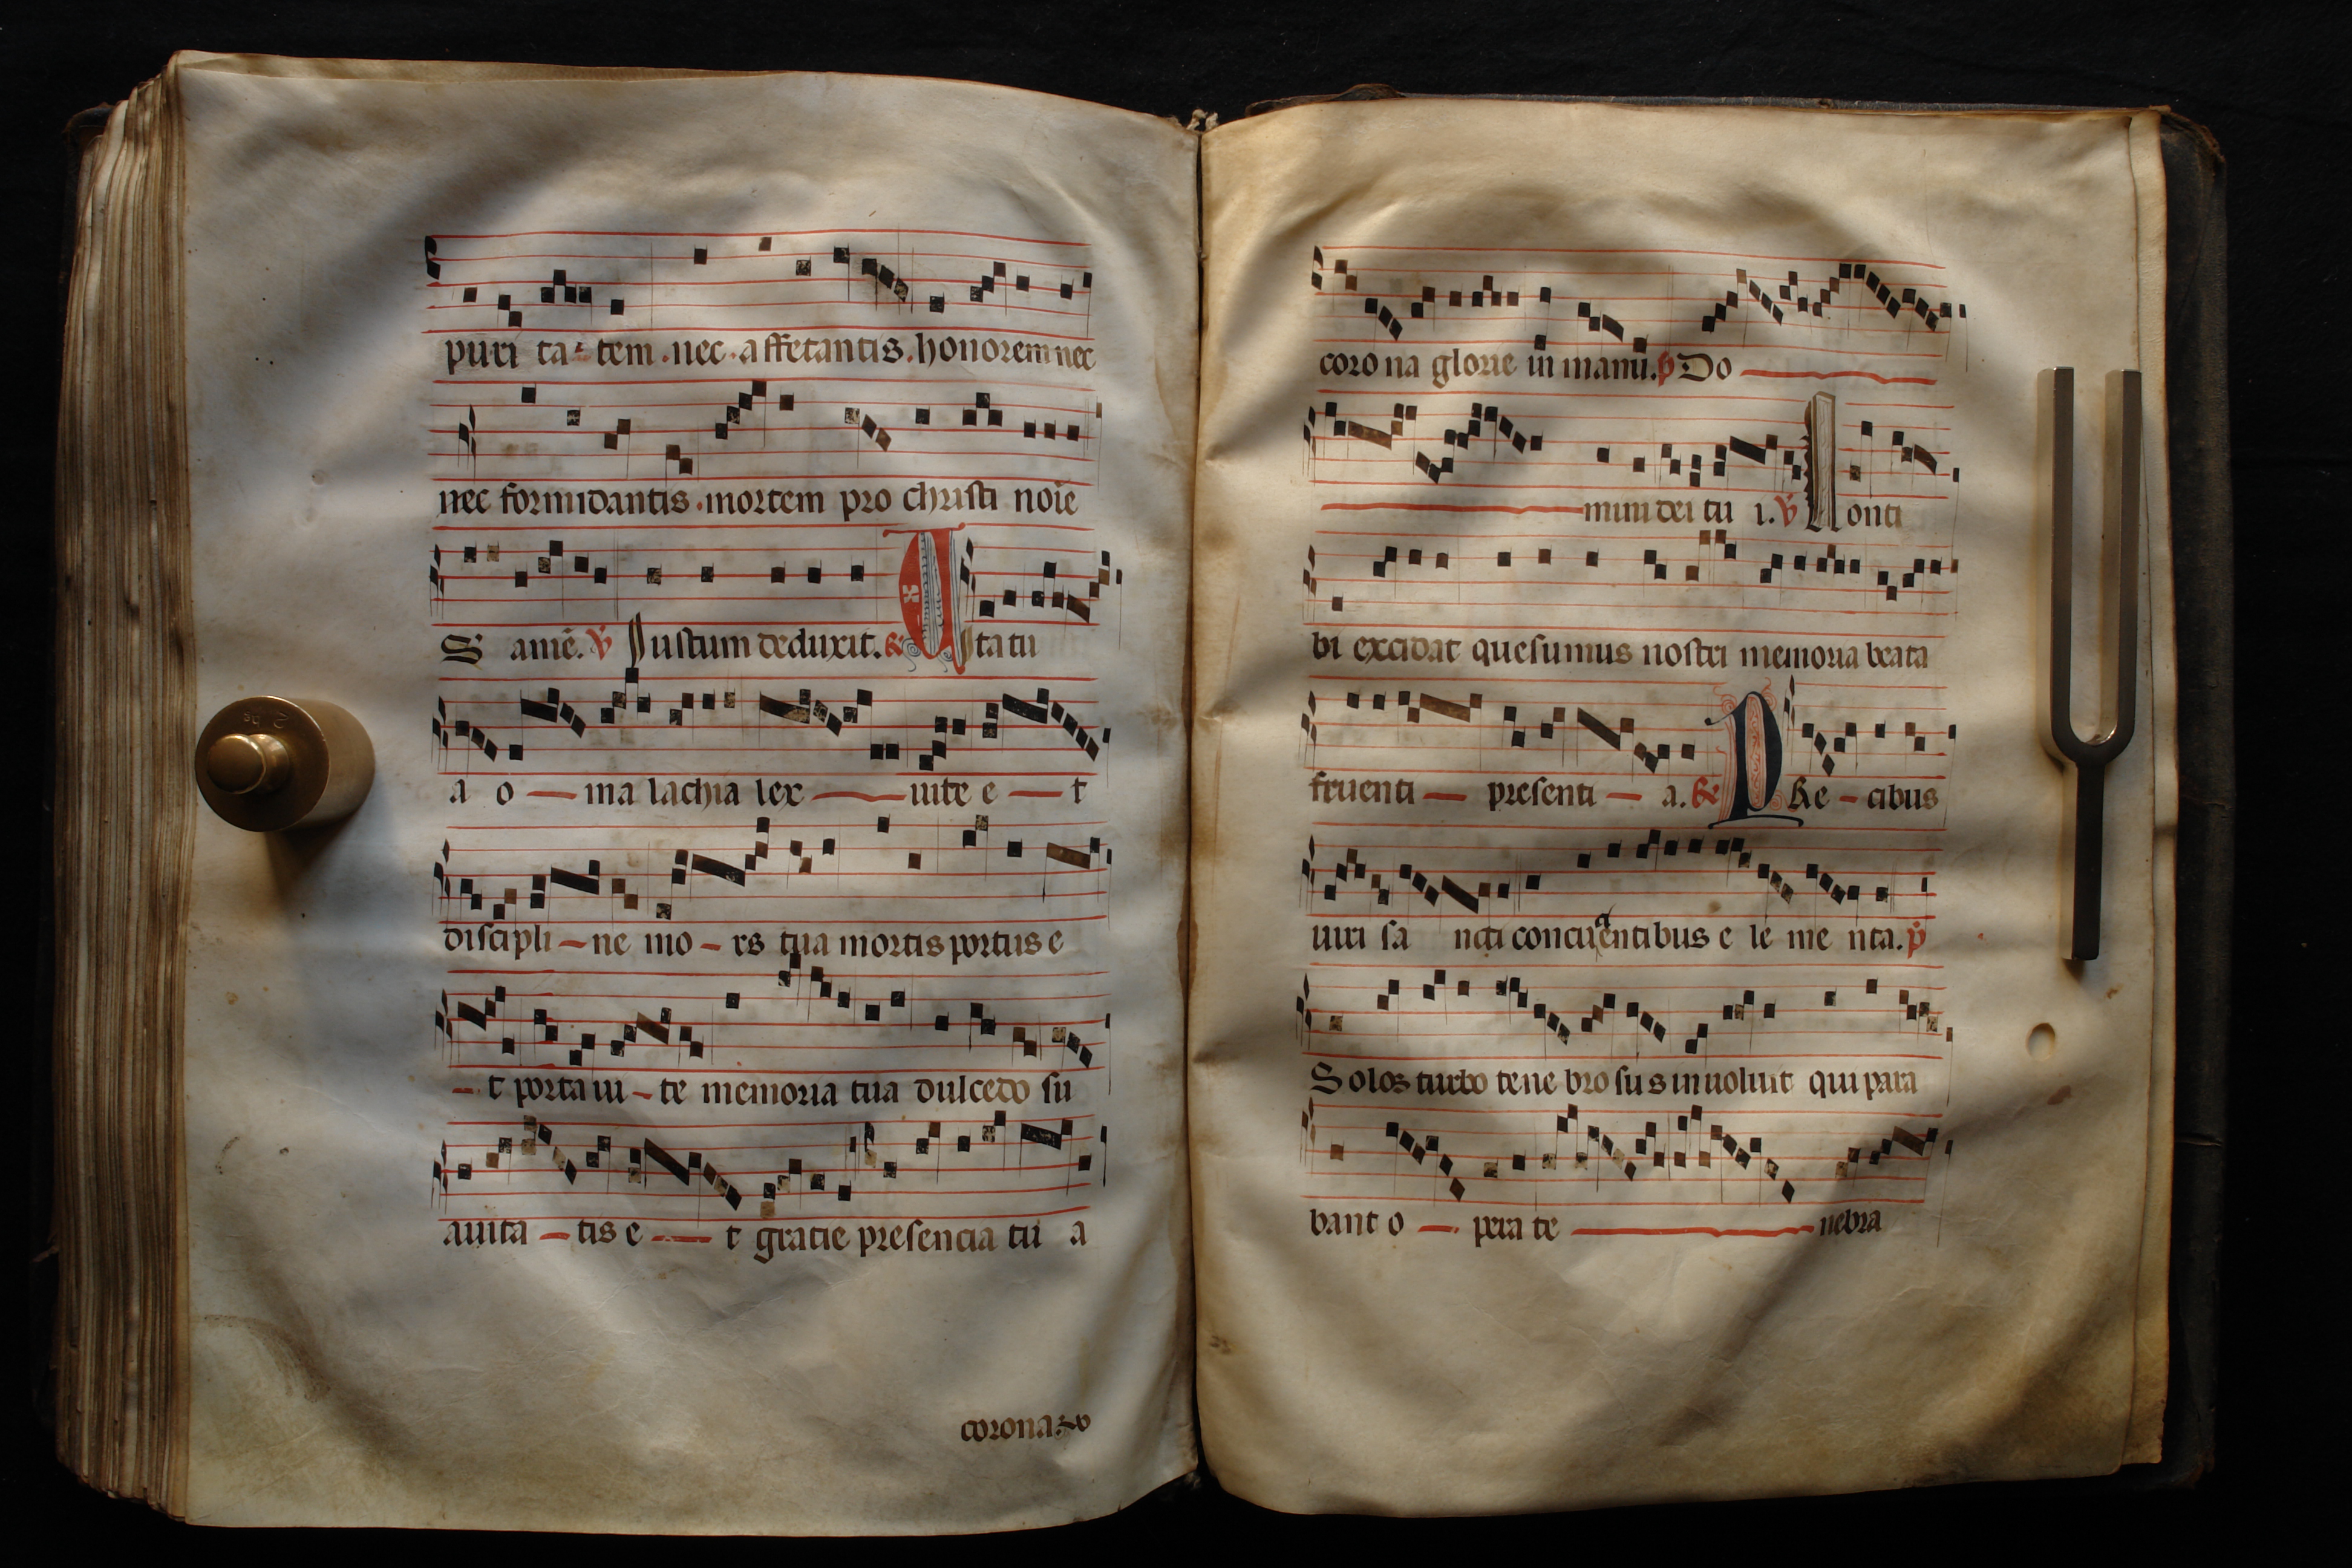 puri ta tem .nec. affectantis. honorem nec
nec formidantis .mortem pro christi noīe
S amē. ꝟ Iustum deduxit. ℟ Ita tu
a o — ma lachia lex — uite e — t
discipli — ne mo — rs tua mortis portus e
— t porta ui — te memoria tua dulcedo su
auita — tis e — t gratie presencia tu a
corona. &
coro na glorie in manu. p Do —
— mini dei tu i. ꝟ Non ti
bi excidat quesumus nostri memoria beata
fruenti — presenti — a. ℟ Pre — cibus
uiri sa ncti concuentibus e le me nta. p
Solos turbo tene bro su s inuoluit qui para
bant o — pera te — nebra
2 hg